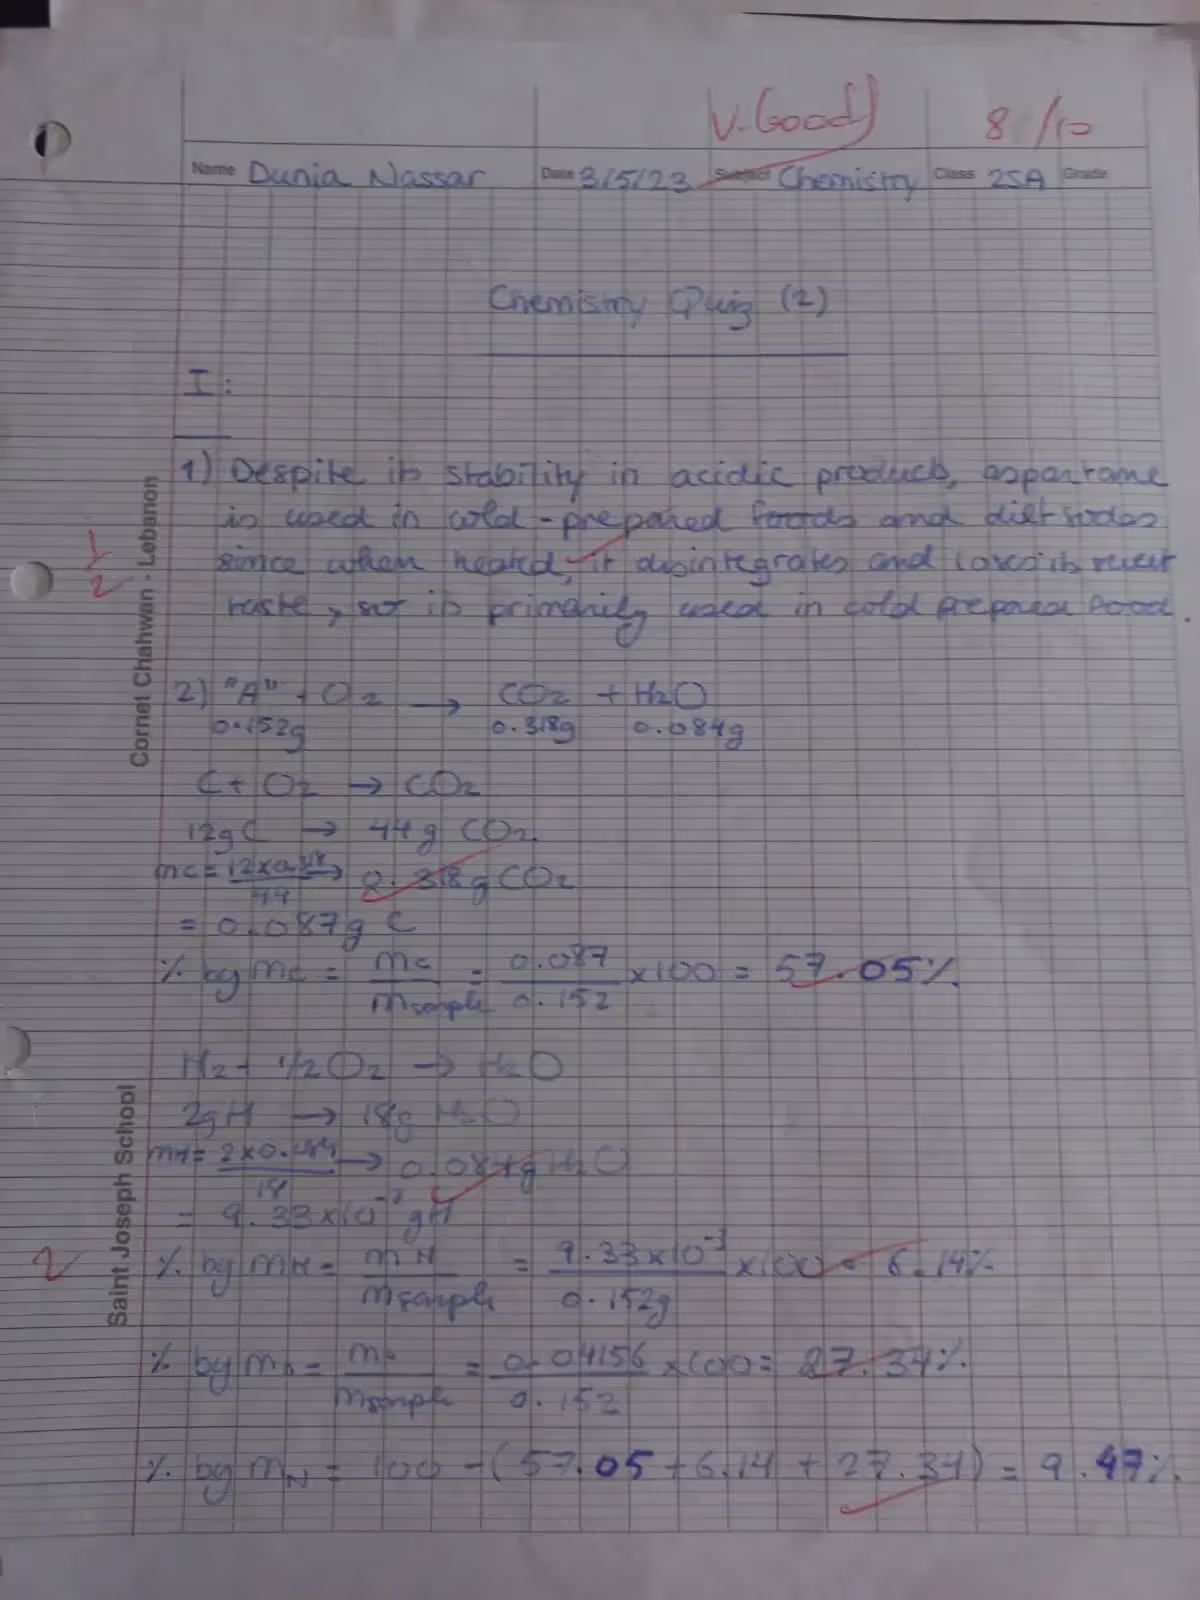 V. Good
8/10
Name Dunia Nassar Date 3/5/23 Subject Chemistry Class 2SA Grade
Chemistry Quiz (2)
I:
1) Despite its stability in acidic products, aspartame
is used in cold-prepared foods and diet sodas
1/2
since when heated, it disintegrates and loses its sweet
taste, so it is primarily used in cold prepared food.
2) "A" + O2 → CO2 + H2O
0.152g 0.318g 0.084g
C + O2 → CO2
12g C → 44g CO2
mC = 12x0.318/44 → 0.318g CO2
= 0.087g C
% by mC = mC/msample = 0.087/0.152 x100 = 57.05%
H2 + 1/2O2 → H2O
2gH → 18g H2O
mH = 2x0.084/18 → 0.084g H2O
= 9.33x10⁻³ gH
2
% by mH = mH/msample = 9.33x10⁻³/0.152g x100 = 6.14%
% by mo = mo/msample = 0.04156/0.152 x100 = 27.34%
% by mN = 100 - (57.05 + 6.14 + 27.34) = 9.47%
Cornet Chahwan - Lebanon
Saint Joseph School